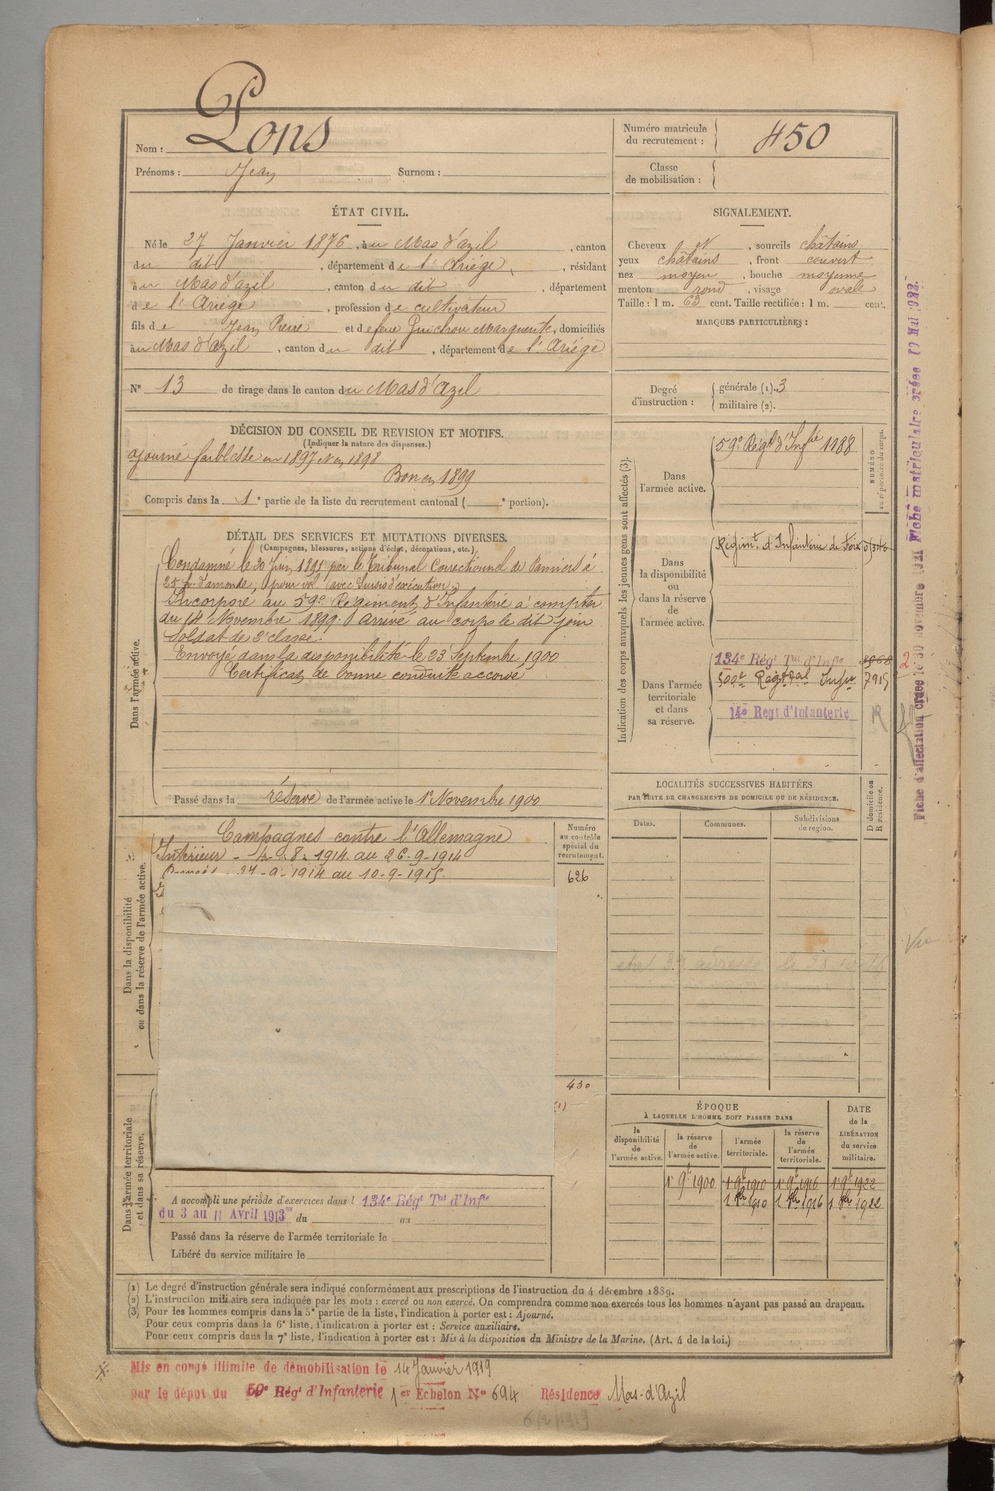 Nom : Pons
Prénoms : Jean Surnom :
Numéro matricule du recrutement : 450
Classe de mobilisation :
ÉTAT CIVIL.
Né le 27 Janvier 1876, au Mas d'azil, canton
du dit, département de l'Ariège, résidant
au Mas d'azil, canton du dit, département
de l'Ariège, profession de cultivateur
fils de Jean Pierre et de feue Guichou Marguerite, domiciliés
au Mas d'Azil, canton du dit, département de l'Ariège
N° 13 de tirage dans le canton du Mas d'Azil
SIGNALEMENT.
Cheveux et, sourcils châtains
yeux châtains, front couvert
nez moyen, bouche moyenne
menton rond, visage ovale
Taille : 1 m. 63 cent. Taille rectifiée : 1 m. cent.
MARQUES PARTICULIÈRES :
Degré d'instruction : générale (1). 3
militaire (2).
DÉCISION DU CONSEIL DE REVISION ET MOTIFS.
(Indiquer la nature des dispenses.)
ajourné faiblesse en 1897 et en 1898
Bon en 1899
Compris dans la 1e partie de la liste du recrutement cantonal ( e portion).
DÉTAIL DES SERVICES ET MUTATIONS DIVERSES.
(Campagnes, blessures, actions d'éclat, décorations, etc.)
Dans l'armée active.
Condamné le 30 Juin 1895 par le Tribunal Correctionnel de Pamiers à
25 fr d'amende, pour vol (avec Sursis d'exécution)
Incorporé au 59e Régiment d'Infanterie à compter
du 14 Novembre 1899. Arrivé au corps le dit jour
Soldat de 2e classe.
Envoyé dans la disponibilité le 23 Septembre 1900
Certificat de bonne conduite accordé
Passé dans la réserve de l'armée active le 1er Novembre 1900
Dans la disponibilité ou dans la réserve de l'armée active.
Campagnes contre l'Allemagne
Intérieur - 4-8-1914 au 26-9-1914
27-9-1914 au 10-9-1915
Numéro au contrôle spécial du recrutement.
626
430
(1)
Dans l'armée territoriale et dans sa réserve.
A accompli une période d'exercices dans l 134e Régt Tal d'Infie
du 3 au 11 Avril 1913 du au
Passé dans la réserve de l'armée territoriale le
Libéré du service militaire le
Indication des corps auxquels les jeunes gens sont affectés (3).
NUMÉRO au répertoire du corps.
Dans l'armée active.
59e Régt d'Infie 1988
Dans la disponibilité ou dans la réserve de l'armée active.
Régimt d'Infanterie de Foix
Dans l'armée territoriale et dans sa réserve.
134e Régt Tal d'Infie
500e Régtal Infie 7915
14e Régt d'Infanterie
R
2
LOCALITÉS SUCCESSIVES HABITÉES
PAR SUITE DE CHANGEMENTS DE DOMICILE OU DE RÉSIDENCE.
Dates. Communes. Subdivisions de region. D domicile ou R résidence.
Vu
ÉPOQUE
À LAQUELLE L'HOMME DOIT PASSER DANS
la disponibilité de l'armée active. la réserve de l'armée active. l'armée territoriale. la réserve de l'armée territoriale. DATE de la LIBÉRATION du service militaire.
1er 9bre 1900 1er 9bre 1910 1er 9bre 1916 1er 9bre 1922
1er 8bre 1910 1er 8bre 1916 1er 8bre 1922
(1) Le degré d'instruction générale sera indiqué conformément aux prescriptions de l'instruction du 4 décembre 1889.
(2) L'instruction militaire sera indiquée par les mots : exercé ou non exercé. On comprendra comme non exercés tous les hommes n'ayant pas passé au drapeau.
(3) Pour les hommes compris dans la 5e partie de la liste, l'indication à porter est : Ajourné.
Pour ceux compris dans la 6e liste, l'indication à porter est : Service auxiliaire.
Pour ceux compris dans la 7e liste, l'indication à porter est : Mis à la disposition du Ministre de la Marine. (Art. 4 de la loi.)
Mis en congé illimité de démobilisation le 14 Janvier 1919
par le dépot du 59e Régt d'Infanterie 1er Echelon N° 694 Résidence Mas-d'Azil